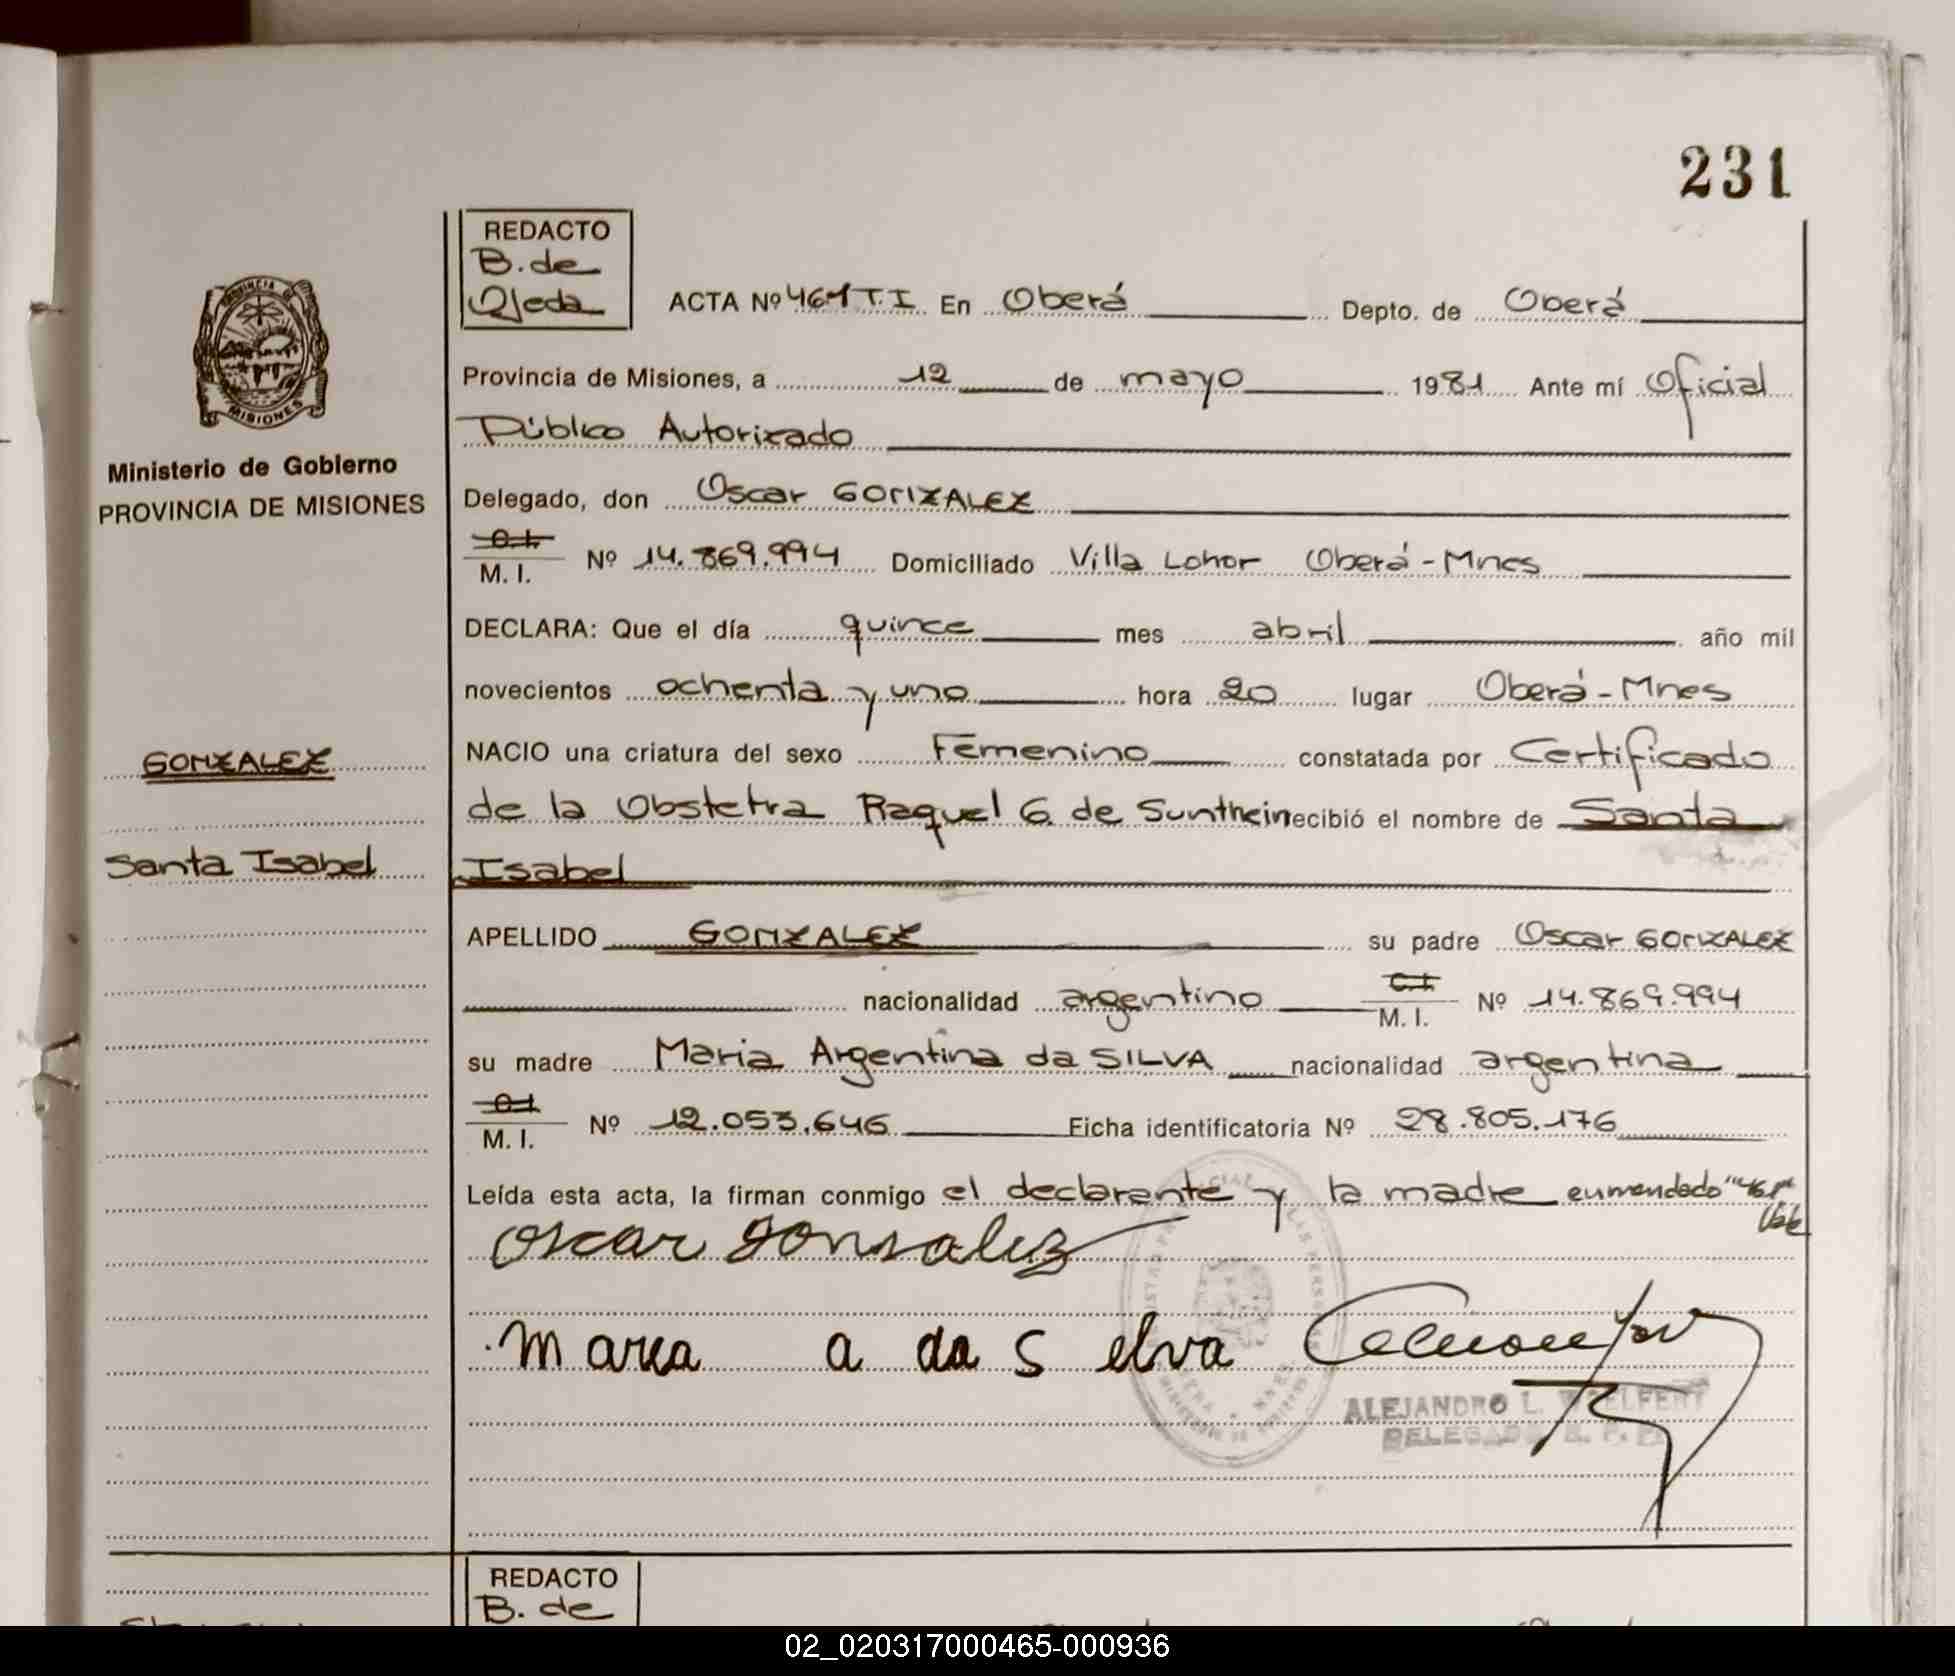 231
REDACTO
B. de
Ojeda
ACTA Nº 461 T.I En Oberá Depto. de Oberá
Provincia de Misiones, a 12 de mayo 1981 Ante mí Oficial
Público Autorizado
PROVINCIA DE
MISIONES
Ministerio de Gobierno
PROVINCIA DE MISIONES
Delegado, don Oscar GONZALEZ
C.I. M. I. Nº 14.869.994 Domiciliado Villa Lohor Oberá - Mnes
DECLARA: Que el día quince mes abril año mil
novecientos ochenta y uno hora 20 lugar Oberá - Mnes
GONZALEZ
NACIO una criatura del sexo Femenino constatada por Certificado
de la Obstetra Raquel G. de recibió el nombre de Santa
Santa Isabel
Isabel
APELLIDO GONZALEZ su padre Oscar GONZALEZ
nacionalidad argentino C.I. M. I. Nº 14.869.994
su madre Maria Argentina da SILVA nacionalidad argentina
C.I. M. I. Nº 12.053.646 Ficha identificatoria Nº 28.805.176
Leída esta acta, la firman conmigo el declarante y la madre enmendado "461"
Vale
Oscar Gonsalez
Maria a da S elva
ALEJANDRO L. WOELFERT
DELEGADO R. P. P.
REDACTO
B. de
02_020317000465-000936